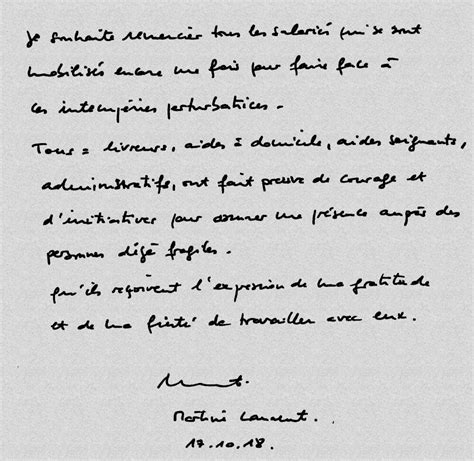 Je souhaite remercier tous les salariés qui se sont
mobilisés encore une fois pour faire face à
ces intempéries perturbatrices.
Tous = livreurs, aides à domicile, aides soignants,
administratifs, ont fait preuve de courage et
d'initiatives pour assurer une présence auprès des
personnes déjà fragiles.
Qu'ils reçoivent l'expression de ma gratitude
et de ma fierté de travailler avec eux.
Martine Laurent.
17.10.18.